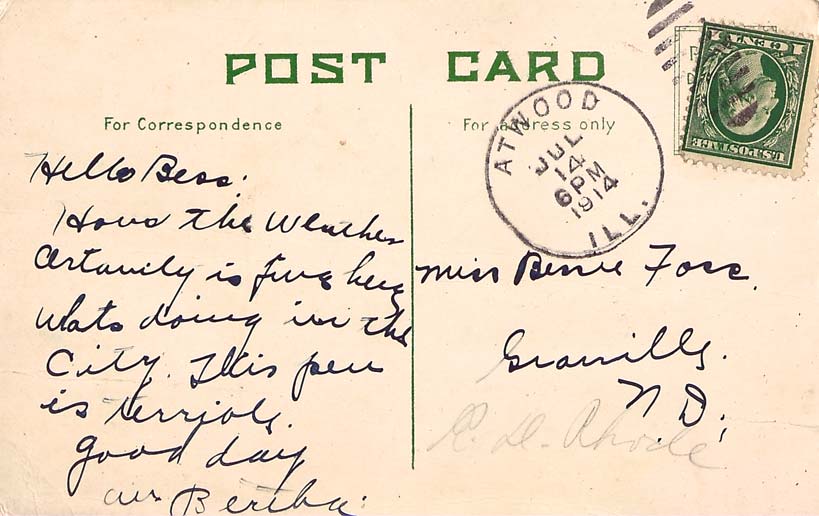 POST CARD
For Correspondence
For address only
ATWOOD
JUL
14
6 PM
1914
ILL.
1 CENT 1
U.S. POSTAGE
Hello Bess:
Hows the Weather
Certainly is fine here
Whats doing in the
City. This pen
is terrible.
Good day
Bertha:
Miss Bessie Foss.
Granville.
N. D.
Rhode